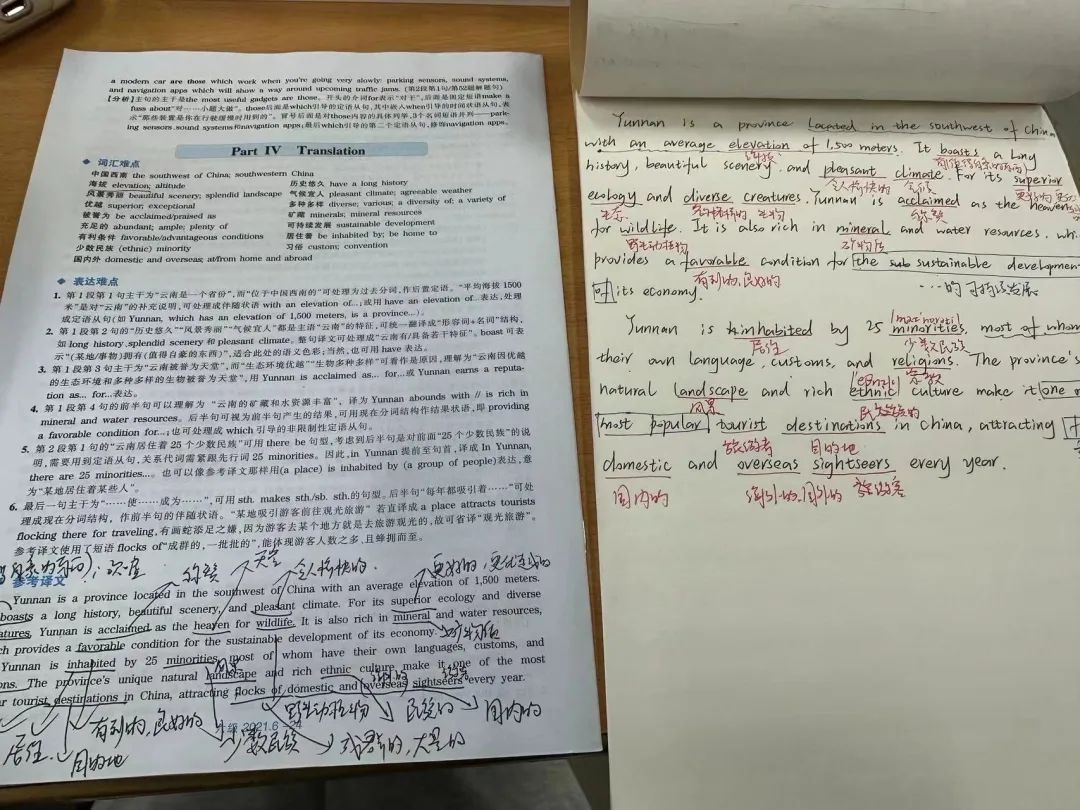 a modern car are those which work when you're going very slowly: parking sensors, sound systems,
and navigation apps which will show a way around upcoming traffic jams. (第2段第1句/第52题解题句)
【分析】主句的主干是the most useful gadgets are those。开头的介词for表示“对于”,后面是固定短语make a
fuss about“对……小题大做”。those后面是which引导的定语从句,其中嵌入when引导的时间状语从句,表
示“那些装置是你在行驶缓慢时用到的”。冒号后面是对those内容的具体列举,3个名词短语并列——park-
ing sensors、sound systems和navigation apps;最后which引导的第二个定语从句,修饰navigation apps。
Part IV Translation
◆ 词汇难点
中国西南 the southwest of China; southwestern China
海拔 elevation; altitude
历史悠久 have a long history
风景秀丽 beautiful scenery; splendid landscape
气候宜人 pleasant climate; agreeable weather
优越 superior; exceptional
多种多样 diverse; various; a diversity of; a variety of
被誉为 be acclaimed/praised as
矿藏 minerals; mineral resources
充足的 abundant; ample; plenty of
可持续发展 sustainable development
有利条件 favorable/advantageous conditions
居住着 be inhabited by; be home to
少数民族 (ethnic) minority
习俗 custom; convention
国内外 domestic and overseas; at/from home and abroad
◆ 表达难点
1. 第1段第1句主干为“云南是一个省份”,而“位于中国西南的”可处理为过去分词,作后置定语。“平均海拔1500
米”是对“云南”的补充说明,可处理成伴随状语 with an elevation of...;或用 have an elevation of...表达,处理
成定语从句(如 Yunnan, which has an elevation of 1,500 meters, is a province...)。
2. 第1段第2句的“历史悠久”“风景秀丽”“气候宜人”都是主语“云南”的特征,可统一翻译成“形容词+名词”结构,
如 long history、splendid scenery 和 pleasant climate。整句译文可处理成“云南有/具备若干特征”。boast 可表
示“(某地/事物)拥有(值得自豪的东西)”,适合此处的语义色彩;当然,也可用 have 表达。
3. 第1段第3句主干为“云南被誉为天堂”,而“生态环境优越”“生物多种多样”可看作是原因,理解为“云南因优越
的生态环境和多种多样的生物被誉为天堂”,用 Yunnan is acclaimed as... for...或 Yunnan earns a reputa-
tion as... for...表达。
4. 第1段第4句的前半句可以理解为 “云南的矿藏和水资源丰富”,译为 Yunnan abounds with // is rich in
mineral and water resources。后半句可视为前半句产生的结果,可用现在分词结构作结果状语,即 providing
a favorable condition for...;也可处理成 which 引导的非限制性定语从句。
5. 第2段第1句的“云南居住着25个少数民族”可用 there be 句型,考虑到后半句是对前面“25个少数民族”的说
明,需要用到定语从句,关系代词需紧跟先行词 25 minorities。因此,in Yunnan 提前至句首,译成 In Yunnan,
there are 25 minorities...。也可以像参考译文那样用(a place) is inhabited by (a group of people)表达,意
为“某地居住着某些人”。
6. 最后一句主干为“……使……成为……”,可用 sth. makes sth./sb. sth.的句型。后半句“每年都吸引着……”可处
理成现在分词结构,作前半句的伴随状语。“某地吸引游客前往观光旅游” 若直译成 a place attracts tourists
flocking there for traveling,有画蛇添足之嫌,因为游客去某个地方就是去旅游观光的,故可省译“观光旅游”。
参考译文使用了短语 flocks of“成群的,一批批的”,能体现游客人数之多,且蜂拥而至。
称赞 天堂 令人愉快的
◆ 参考译文
Yunnan is a province located in the southwest of China with an average elevation of 1,500 meters.
boasts a long history, beautiful scenery, and pleasant climate. For its superior ecology and diverse
atures, Yunnan is acclaimed as the heaven for wildlife. It is also rich in mineral and water resources,
ch provides a favorable condition for the sustainable development of its economy.
矿物质
Yunnan is inhabited by 25 minorities, most of whom have their own languages, customs, and
ons. The province's unique natural landscape and rich ethnic culture make it one of the most
r tourist destinations in China, attracting flocks of domestic and overseas sightseers every year.
有利的,良好的
野生动植物
民族的
国内的
六级 2021.6-24
居住
目的地
少数民族
成群的,大量的
Yunnan is a province located in the southwest of China
with an average elevation of 1,500 meters. It boasts a long
海拔
history, beautiful scenery, and pleasant climate. For its superior
令人愉快的 气候
ecology and diverse creatures, Yunnan is acclaimed as the heavens
生态 多种多样的 生物 称赞
for wildlife. It is also rich in mineral and water resources, whi
野生动植物 矿物质
provides a favorable condition for the sub sustainable developmen
有利的,良好的 …的可持续发展
of its economy.
Yunnan is inhabited by 25 minorities, most of whom
居住 少数民族
their own language, customs, and religions. The province's
宗教
natural landscape and rich ethnic culture make it one o
风景 民族的
most popular tourist destinations in China, attracting
旅游者 目的地
domestic and overseas sightseers every year.
国内的 海外的,国外的 旅游者